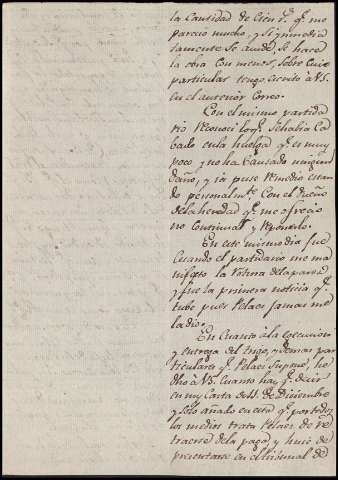 la Cantidad de Cien r.s q.e me
parecio mucho, y si ynmedia
tamente se acude, se hace
la obra con menos, sobre cuio
particular tengo escrito à VS.
en el anterior Correo.
Con el mismo partida
rio reconoci lo q.e se havia ca
bado en la huelga q.e es muy
poco y no ha causado ningun
daño, y ya puse remedio estan
do personalm.te con el dueño
de la heredad q.e me ofrecio
no continuar y reponerlo.
En este mismo dia fue
cuando el partidario me ma
nifesto la rotura de la pared
y fue la primera noticia q.e
tube pues Pelaez jamas me
la dio.
En cuanto à la
y entrega del trigo, y demas par
ticulares q.e Pelaez supone, he
dho à VS. cuanto hay q.e decir
en my Carta de 11. de Diciembre
y solo añado en esta q.e por todos
los medios trata Pelaez de re
traerse de la paga, y huie de
presentarse en el tribunal de